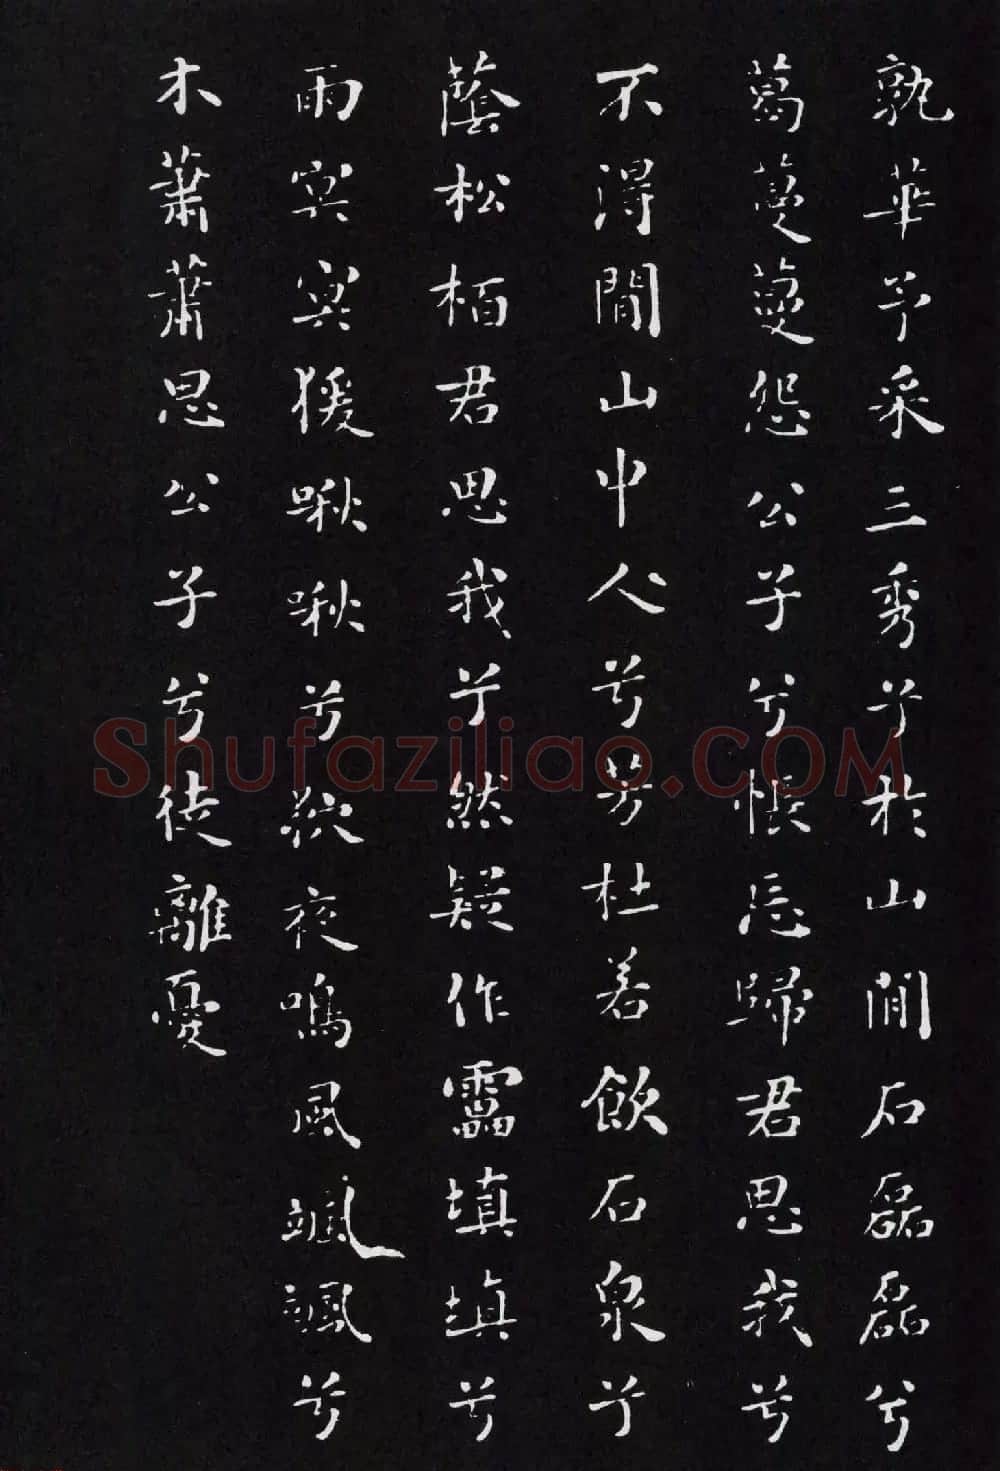 孰華予采三秀兮於山間石磊磊兮
葛蔓蔓怨公子兮悵忘歸君思我兮
不得閒山中人兮芳杜若飲石泉兮
蔭松栢君思我兮然疑作靁填填兮
雨冥冥猨啾啾兮狖夜鳴風颯颯兮
木蕭蕭思公子兮徒離憂
Shufaziliao.COM